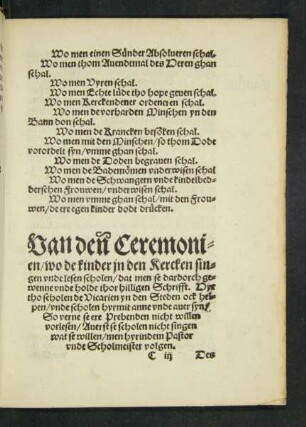 Wo men einen Sünder Absolveren schal.
Wo men thom Auendtmal des Heren ghan
schal.
Wo men Vyren schal.
Wo men Echte lüde tho hope geuen schal.
Wo men Kerckendener ordeneren schal.
Wo men de vorharden Minschen yn den
Bann don schal.
Wo men de Krancken besöken schal.
Wo men mit den Minschen/ so thom Dode
vorordelt syn/ vmme ghan schal.
Wo men de Doden begrauen schal.
Wo men de Bademömen vnderwisen schal
Wo men de Schwangern vnde kindelbed-
derschen Frouwen/ vnderwisen schal.
Wo men vmme ghan schal/ mit den Frou-
wen/ de ere egen kinder dodt drücken.
Van den Ceremoni-
en/ wo de kinder jn den Kercken sin-
gen vnde lesen scholen/ dat men se dardorch ge-
wenne vnde holde thor hilligen Schrifft. Hyr
tho scholen de Vicarien yn den Steden ock hel-
pen/ vnde scholen hyrmit anne vnde auer syn/
So verne se ere Prebenden nicht willen
vorlesen/ Auerst se scholen nicht singen
wat se willen/ men hyrindem Pastor
vnde Scholmeister volgen.
C iij Des